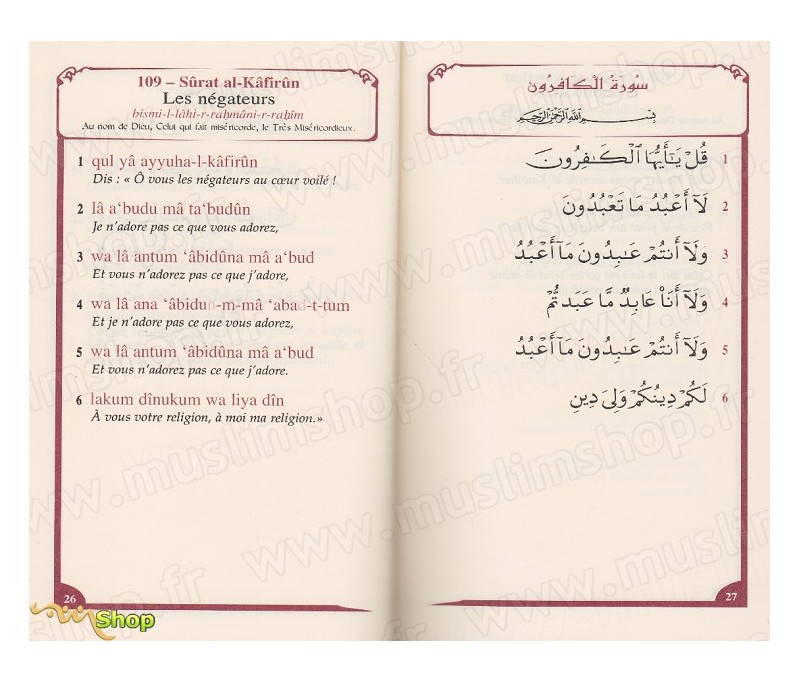 109 – Sûrat al-Kâfirûn
Les négateurs
bismi-l-lâhi-r-raḥmâni-r-raḥîm
Au nom de Dieu, Celui qui fait miséricorde, le Très Miséricordieux.
1 qul yâ ayyuha-l-kâfirûn
Dis : « Ô vous les négateurs au cœur voilé !
2 lâ a‘budu mâ ta‘budûn
Je n’adore pas ce que vous adorez,
3 wa lâ antum ‘âbidûna mâ a‘bud
Et vous n’adorez pas ce que j’adore,
4 wa lâ ana ‘âbidu -m-mâ ‘abad-t-tum
Et je n’adore pas ce que vous adorez,
5 wa lâ antum ‘âbidûna mâ a‘bud
Et vous n’adorez pas ce que j’adore.
6 lakum dînukum wa liya dîn
À vous votre religion, à moi ma religion.»
26
Shop
سُورَةُ الْكَافِرُون
بِسْمِ اللَّهِ الرَّحْمَٰنِ الرَّحِيمِ
قُلْ يَٰٓأَيُّهَا ٱلْكَٰفِرُونَ 1
لَآ أَعْبُدُ مَا تَعْبُدُونَ 2
وَلَآ أَنتُمْ عَٰبِدُونَ مَآ أَعْبُدُ 3
وَلَآ أَنَا۠ عَابِدٌ مَّا عَبَدتُّمْ 4
وَلَآ أَنتُمْ عَٰبِدُونَ مَآ أَعْبُدُ 5
لَكُمْ دِينُكُمْ وَلِىَ دِينِ 6
27
www.muslimshop.fr